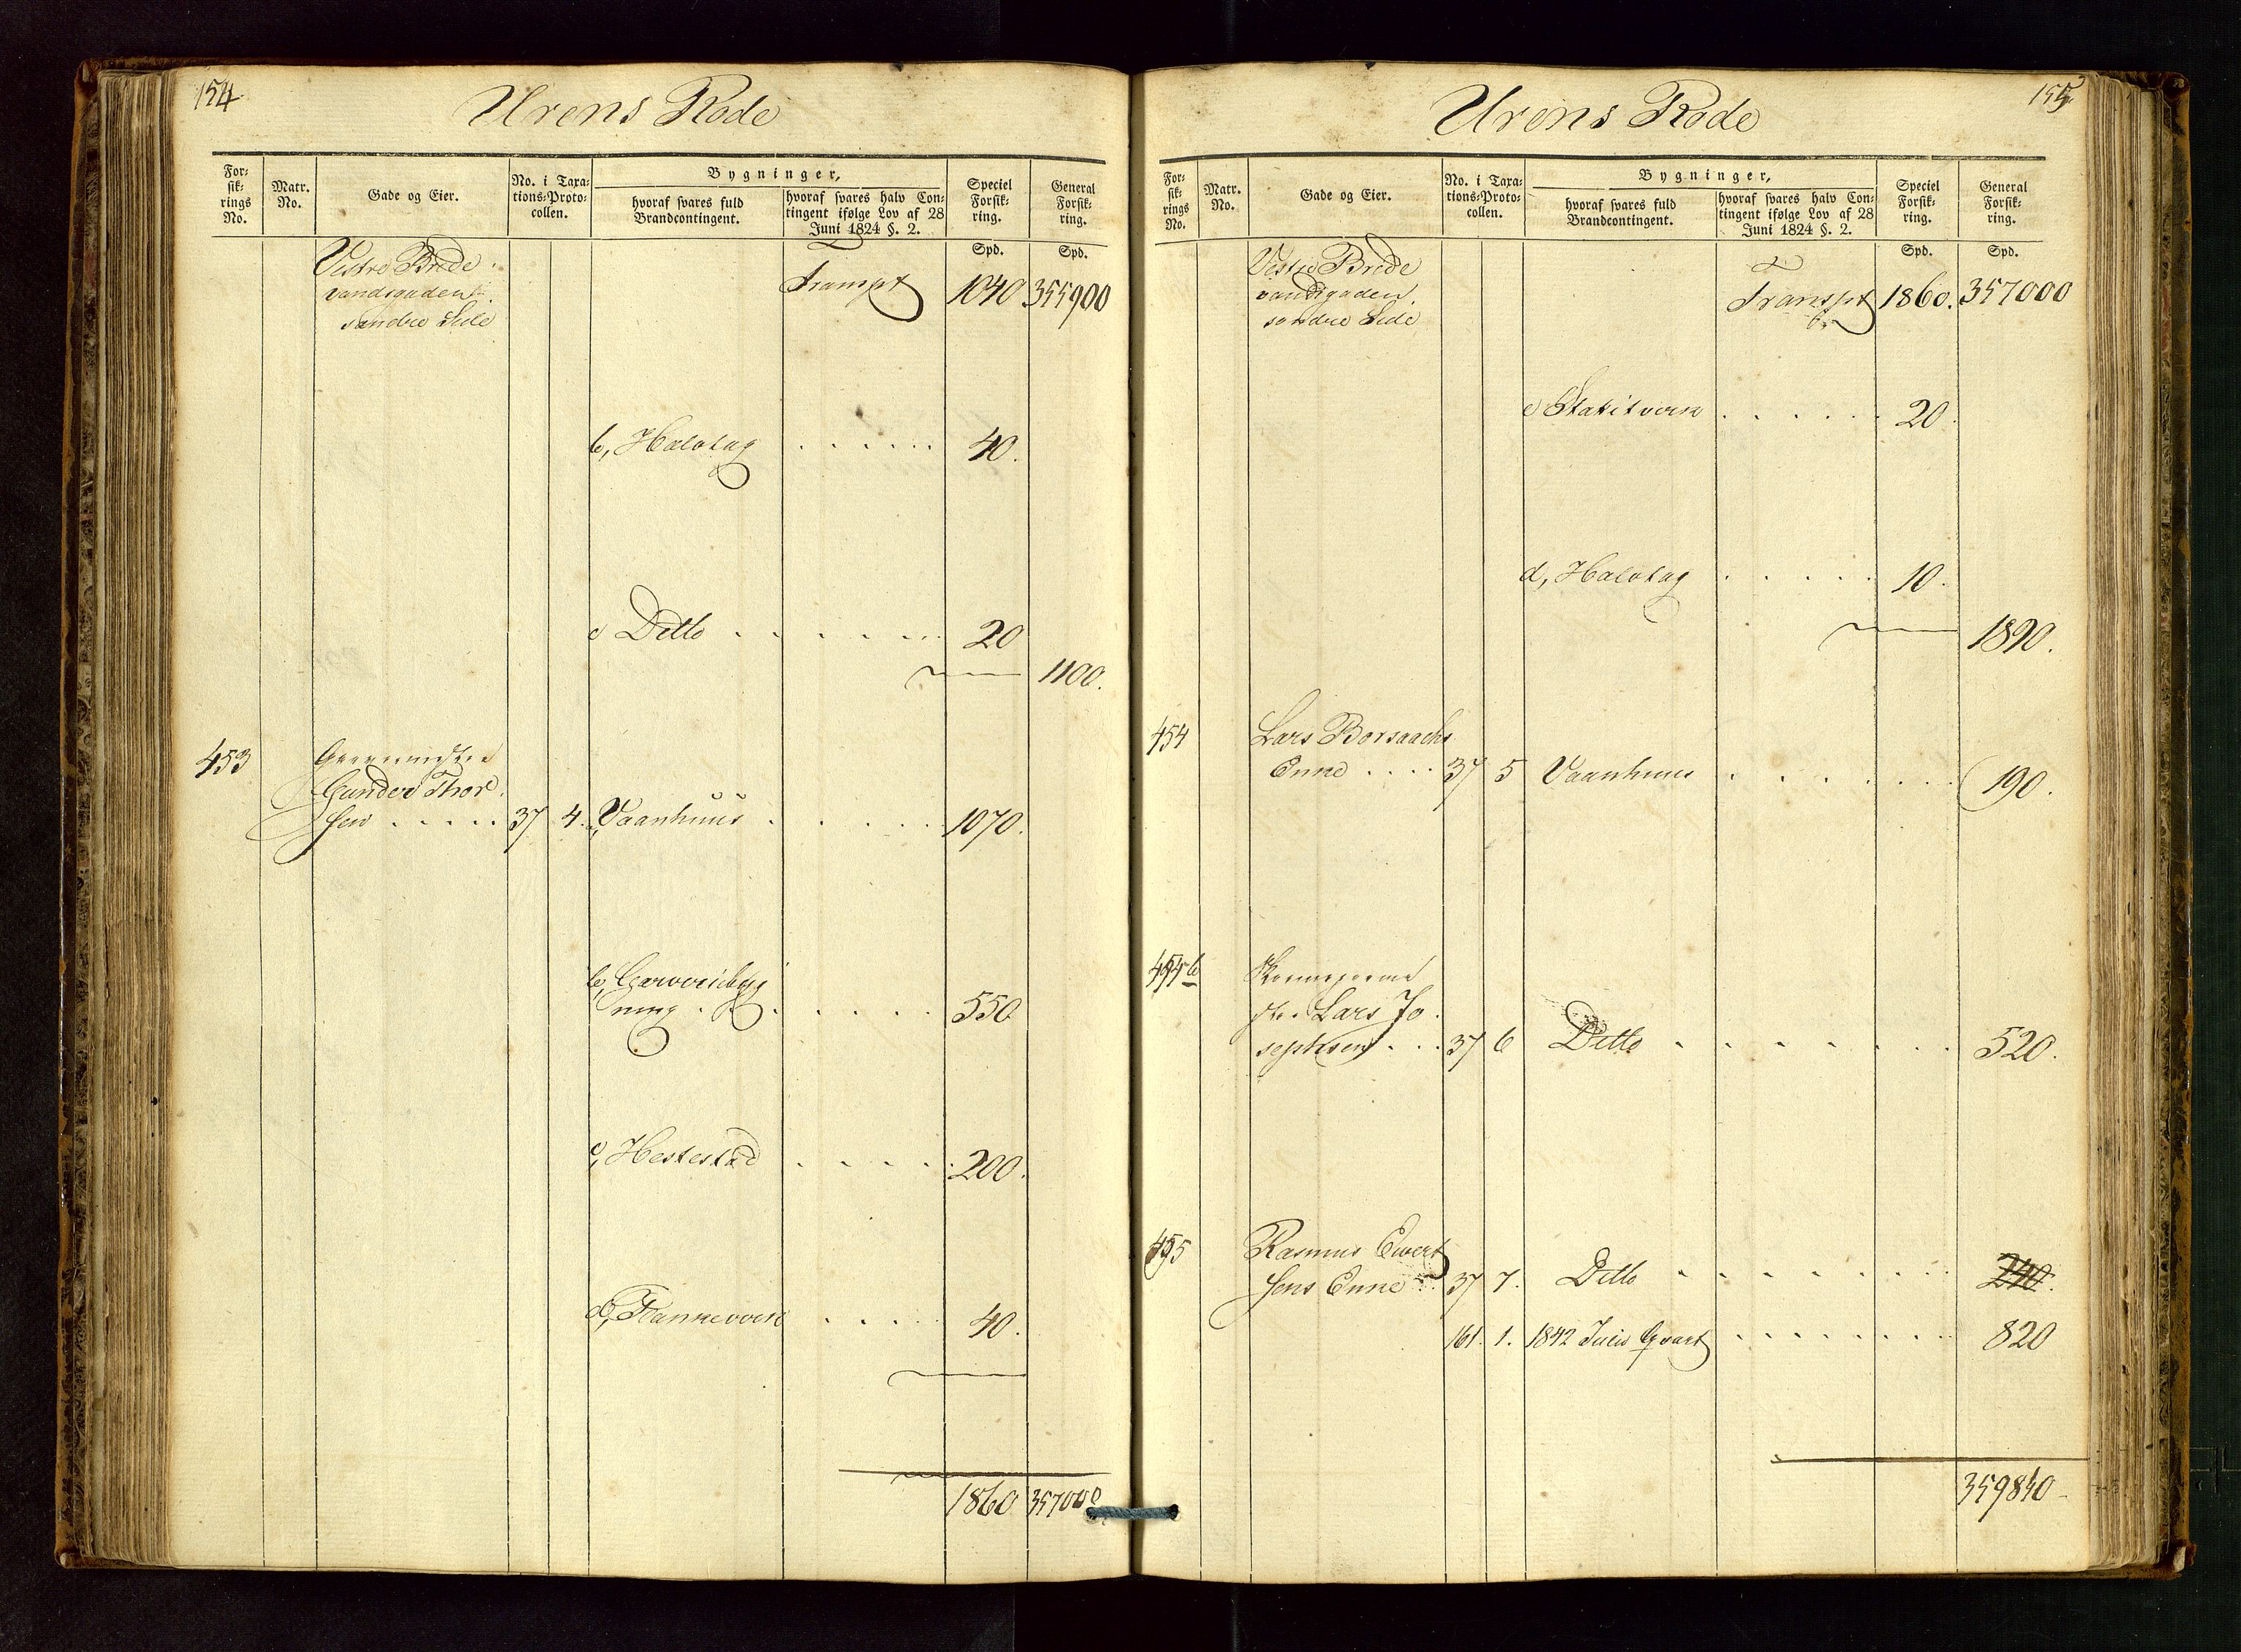 154
Urens Rode
For:
sik:
rings
No.
Matr.
No.
Gade og Eier.
No. i Taxa:
tions:Proto:
collen.
Bygninger,
hvoraf svares fuld
Brandcontingent.
hvoraf svares halv Con:
tingent ifølge Lov af 28
Juni 1824 §. 2.
Speciel
Forsik:
ring.
General
Forsik:
ring.
Spd. Spd.
Vestre Brede
vandsgadens
søndre Side
Transpt 1040 355900
b, Halvtag . . . . . . 40.
c Ditto . . . . . . 20
1100.
453
Garvermester
Gunder Thor
sen . . . . . 37 4. a, Vaanhuus . . . . . 1070.
b, Garveribyg
ning . . . . . . 550
c, Hestestad . . . . . 200.
d, Plankeværk . . . . 40.
1860 357000
155
Urens Rode
For:
sik:
rings
No.
Matr.
No.
Gade og Eier.
No. i Taxa:
tions:Proto:
collen.
Bygninger,
hvoraf svares fuld
Brandcontingent.
hvoraf svares halv Con:
tingent ifølge Lov af 28
Juni 1824 §. 2.
Speciel
Forsik:
ring.
General
Forsik:
ring.
Spd. Spd.
Vestre Brede
vandsgaden.
søndre Side
Transpt 1860. 357000
c Stakitværk . . . . . . 20.
d, Halvtag . . . . . 10.
1890.
454 Lars
Enne . . . . 37 5 Vaanhuus . . . . . . . 190.
454 b
Lars Jo
sephsen . . . 37 6 Ditto . . . . . . . 520.
455 Rasmus Evert
sens Enne . . 37 7. Ditto . . . . . . . . 240.
161. 1. 1842 Qvart . . . . . . . . 820
359840